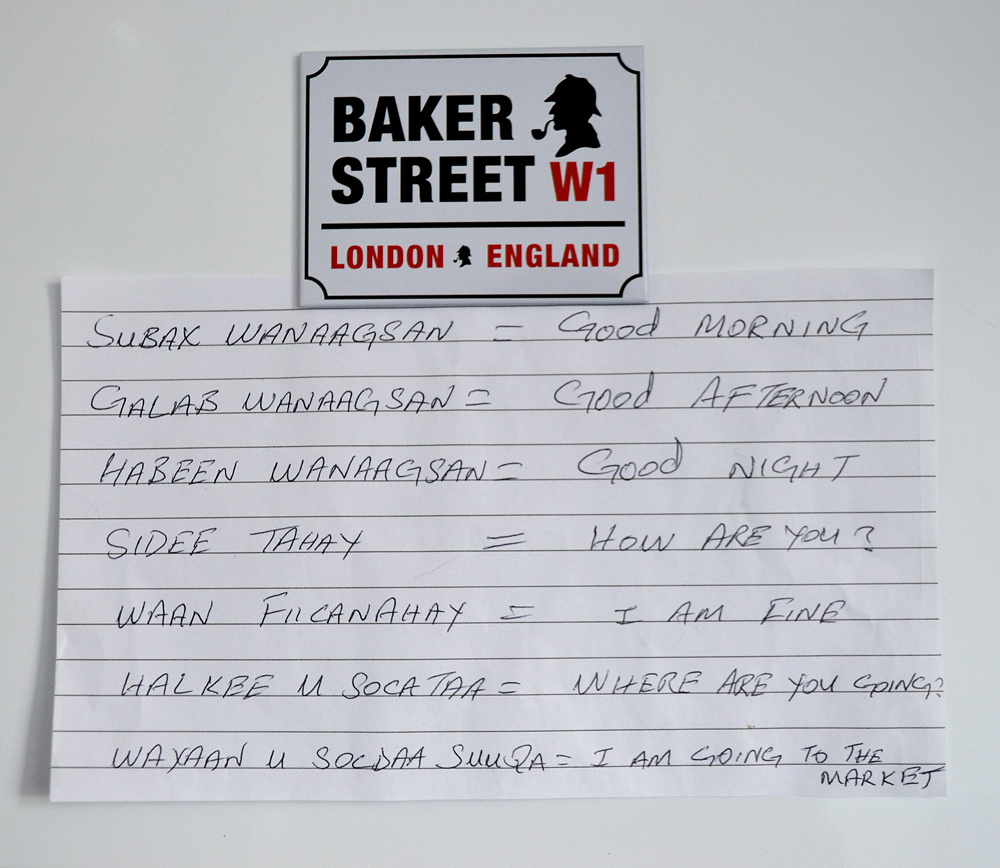 BAKER
STREET W1
LONDON ENGLAND
SUBAX WANAAGSAN = Good MORNING
GALAB WANAAGSAN = Good AFTERNOON
HABEEN WANAAGSAN = Good NIGHT
SIDEE TAHAY = HOW ARE YOU?
WAAN FIICANAHAY = I AM FINE
HALKEE U SOCATAA = WHERE ARE YOU GOING?
WAXAAN U SOCDAA SUUQA = I AM GOING TO THE
MARKET